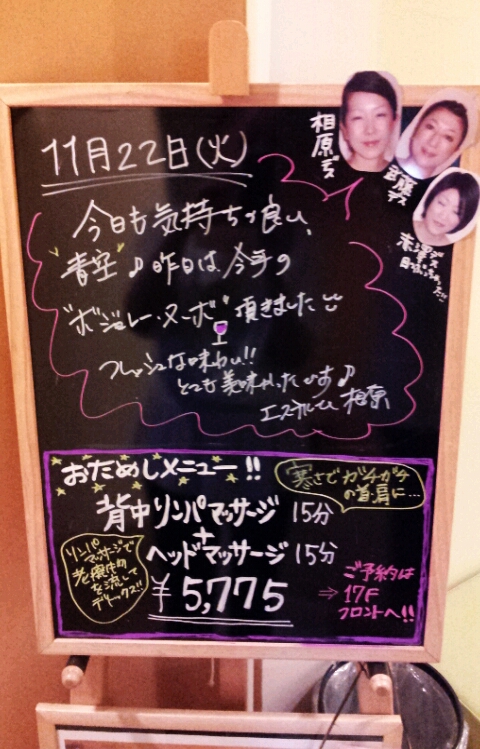 11月22日(火)
相原デス
武藤デス
今日も気持ちの良い、
青空♪昨日は、今年の
"ボジョレー・ヌーボ"頂きました
フレッシュな味わい!!
とても美味しかったです♪
エステルーム 相原
おためしメニュー!!
寒さでガチガチ
の首・肩に…
背中リンパマッサージ 15分
+
ヘッドマッサージ 15分
¥5,775
リンパ
マッサージで
老廃物
を流して
デトックス!!
ご予約は
⇒ 17F
フロントへ!!